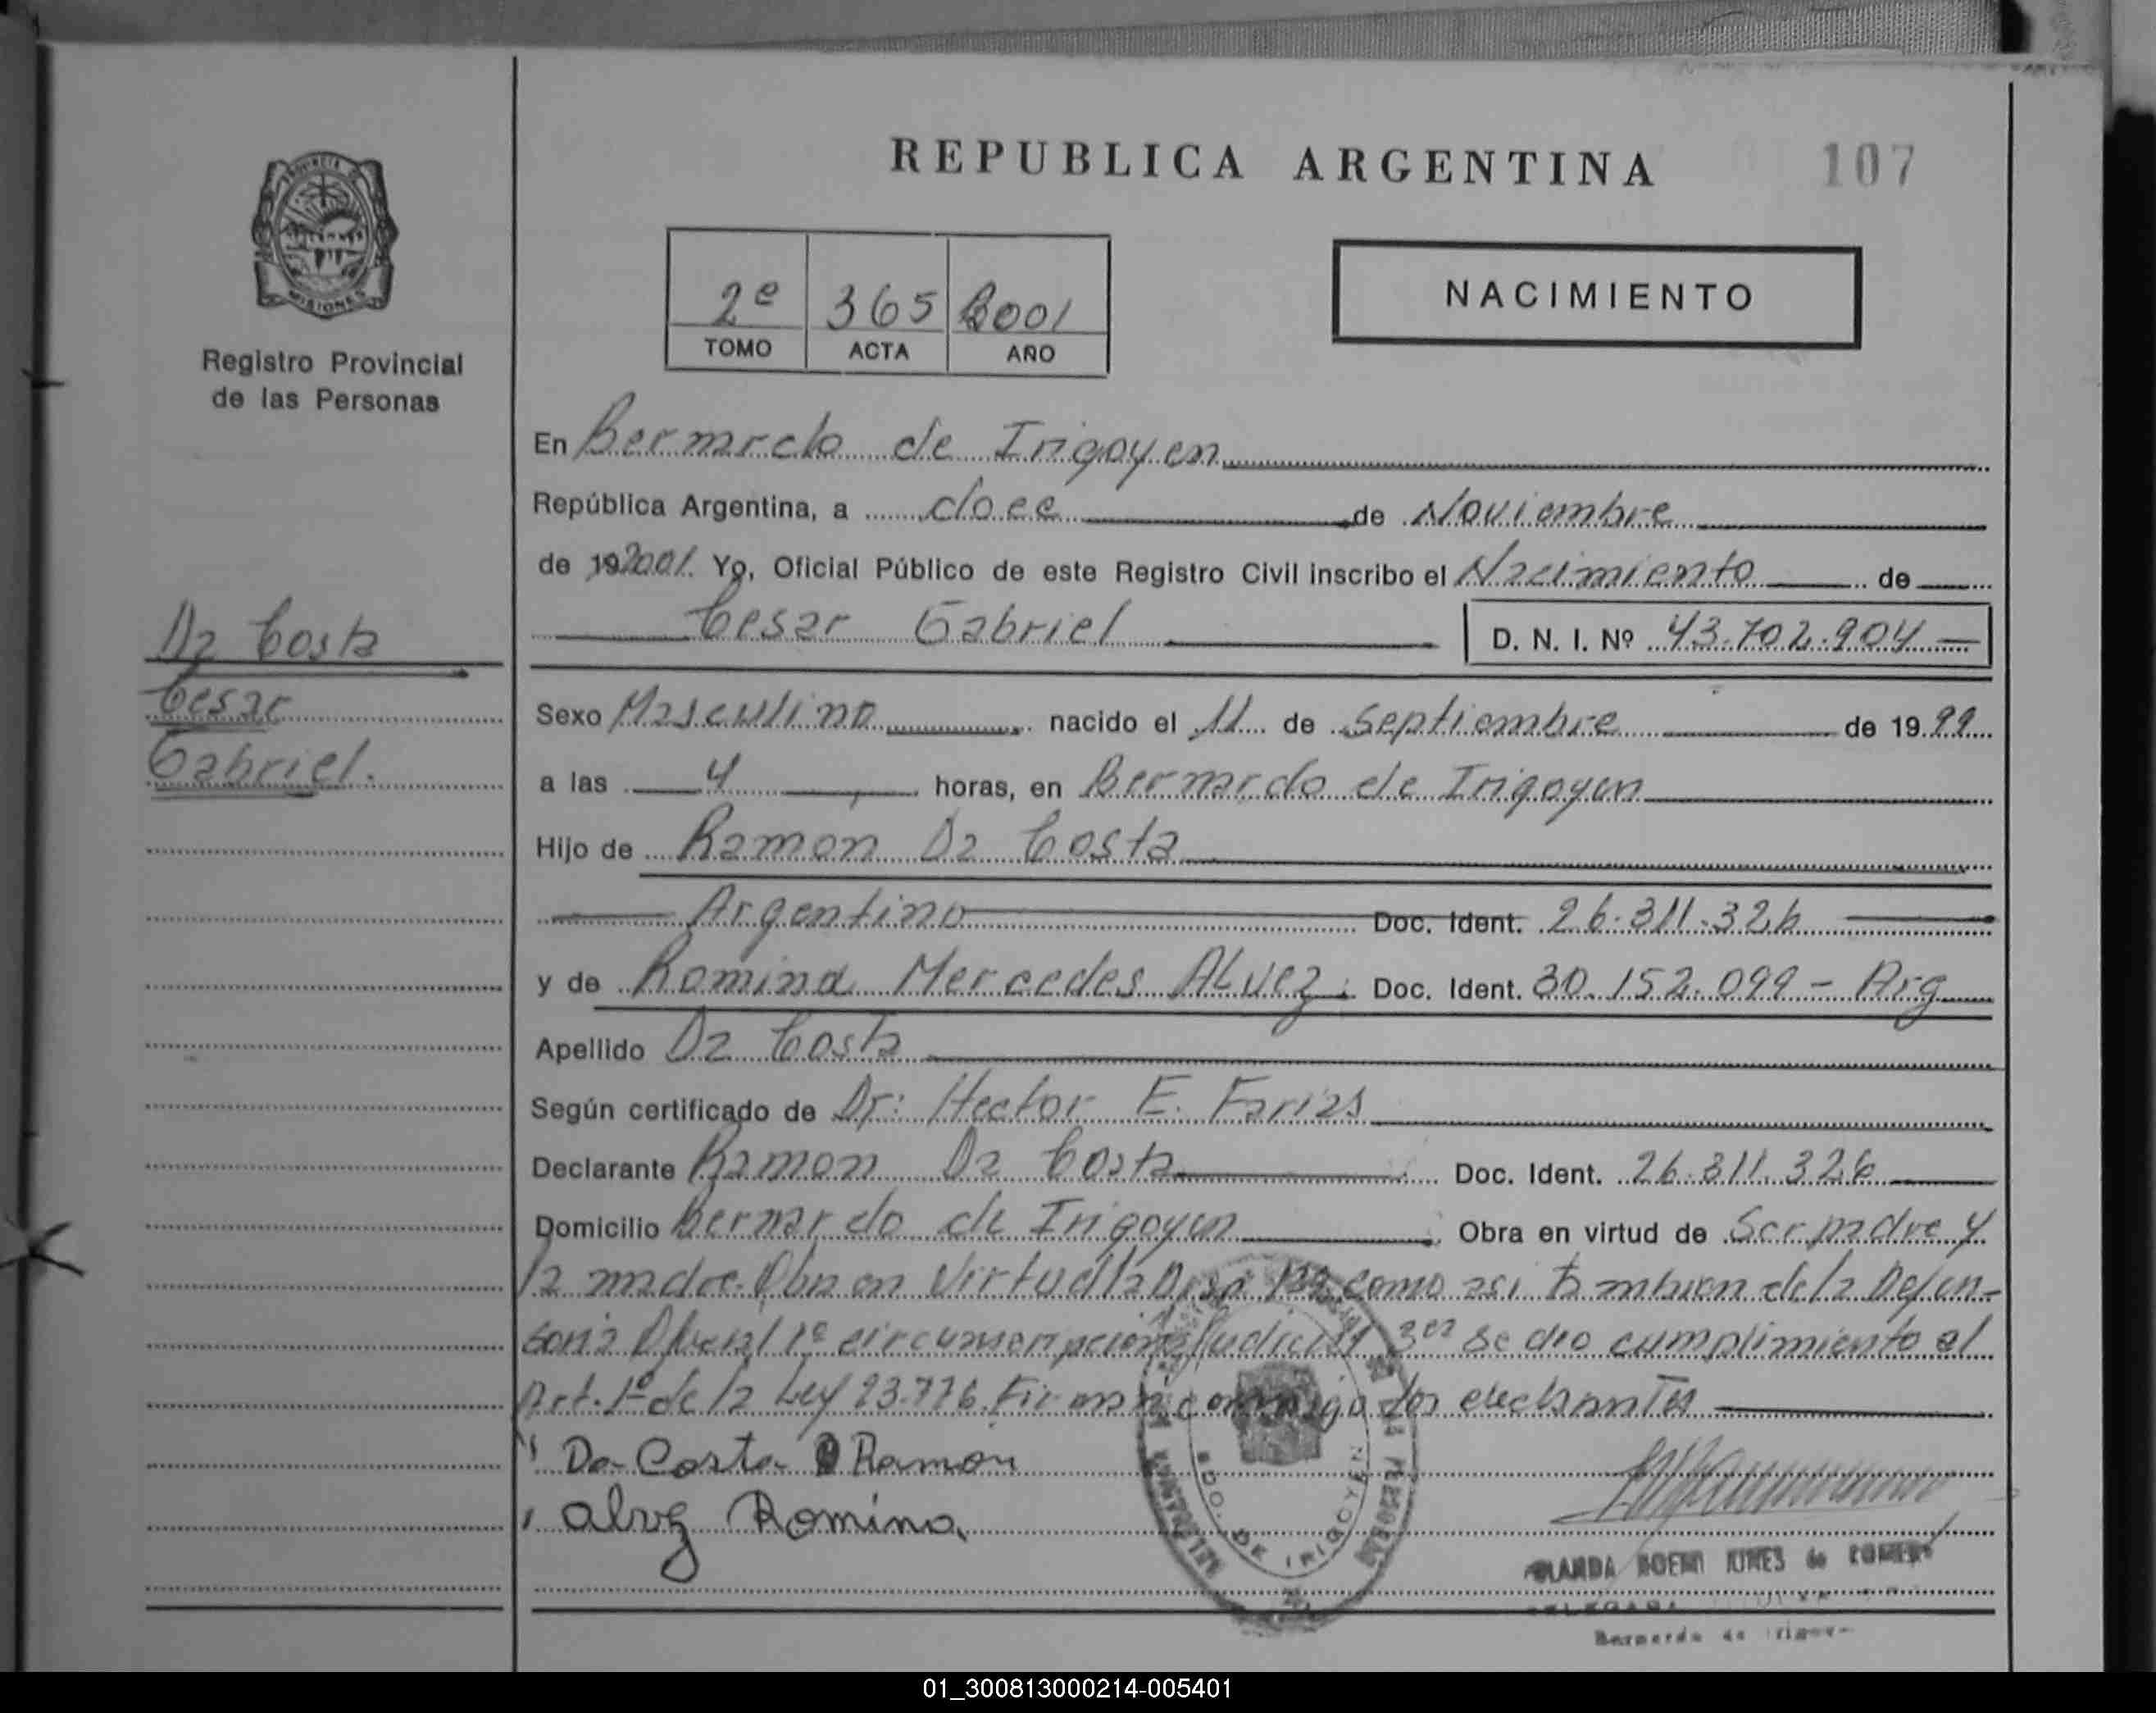 REPUBLICA ARGENTINA
107
PROVINCIA DE
MISIONES
Registro Provincial
de las Personas
2º 365 2001
TOMO ACTA AÑO
NACIMIENTO
En Bernardo de Irigoyen
República Argentina, a doce de Noviembre
de 192001. Yo, Oficial Público de este Registro Civil inscribo el Nacimiento de
Cesar Gabriel D. N. I. Nº 43.702.904
Da Costa
Cesar
Gabriel.
Sexo Masculino nacido el 11 de Septiembre de 1999
a las 4 horas, en Bernardo de Irigoyen
Hijo de Ramon Da Costa
Argentino Doc. Ident. 26.311.326
y de Romina Mercedes Alvez. Doc. Ident. 30.152.099 - Arg
Apellido Da Costa
Según certificado de Dr: Hector E. Farias
Declarante Ramon Da Costa Doc. Ident. 26.311.326
Domicilio Bernardo de Irigoyen Obra en virtud de Ser padre y
la madre. Obra en Virtud la como asi tambien de la Defen-
soria 1º circunscripcion Judicial 3er se dio cumplimiento al
Art. 1º de la Ley 23.776. Firman conmigo los declarantes
Da Costa Ramon
Alvez Romina
BDO. DE IRIGOYEN
de ROMERO
Bernardo de
01_300813000214-005401